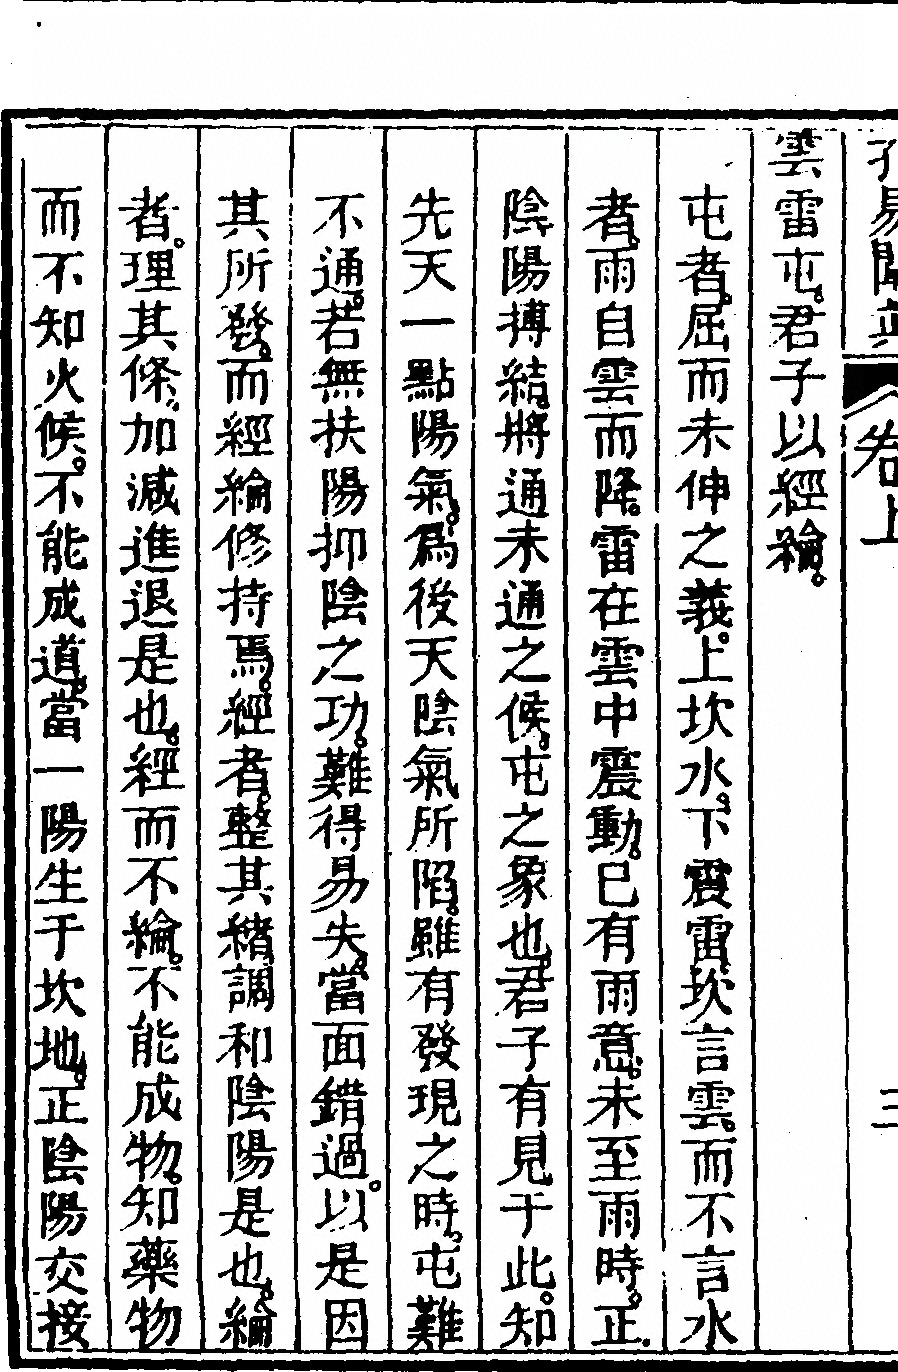 孔易闡眞
卷上
三
雲雷屯。君子以經綸。
屯者。屈而未伸之義。上坎水。下震雷。坎言雲。而不言水
者。雨自雲而降。雷在雲中震動。已有雨意。未至雨時。正
陰陽搏結。將通未通之候。屯之象也。君子有見于此。知
先天一點陽氣。爲後天陰氣所陷。雖有發現之時。屯難
不通。若無扶陽抑陰之功。難得易失。當面錯過。以是因
其所發。而經綸修持焉。經者。整其緒。調和陰陽是也。綸
者。理其條。加減進退是也。經而不綸。不能成物。知藥物
而不知火候。不能成道。當一陽生于坎地。正陰陽交接